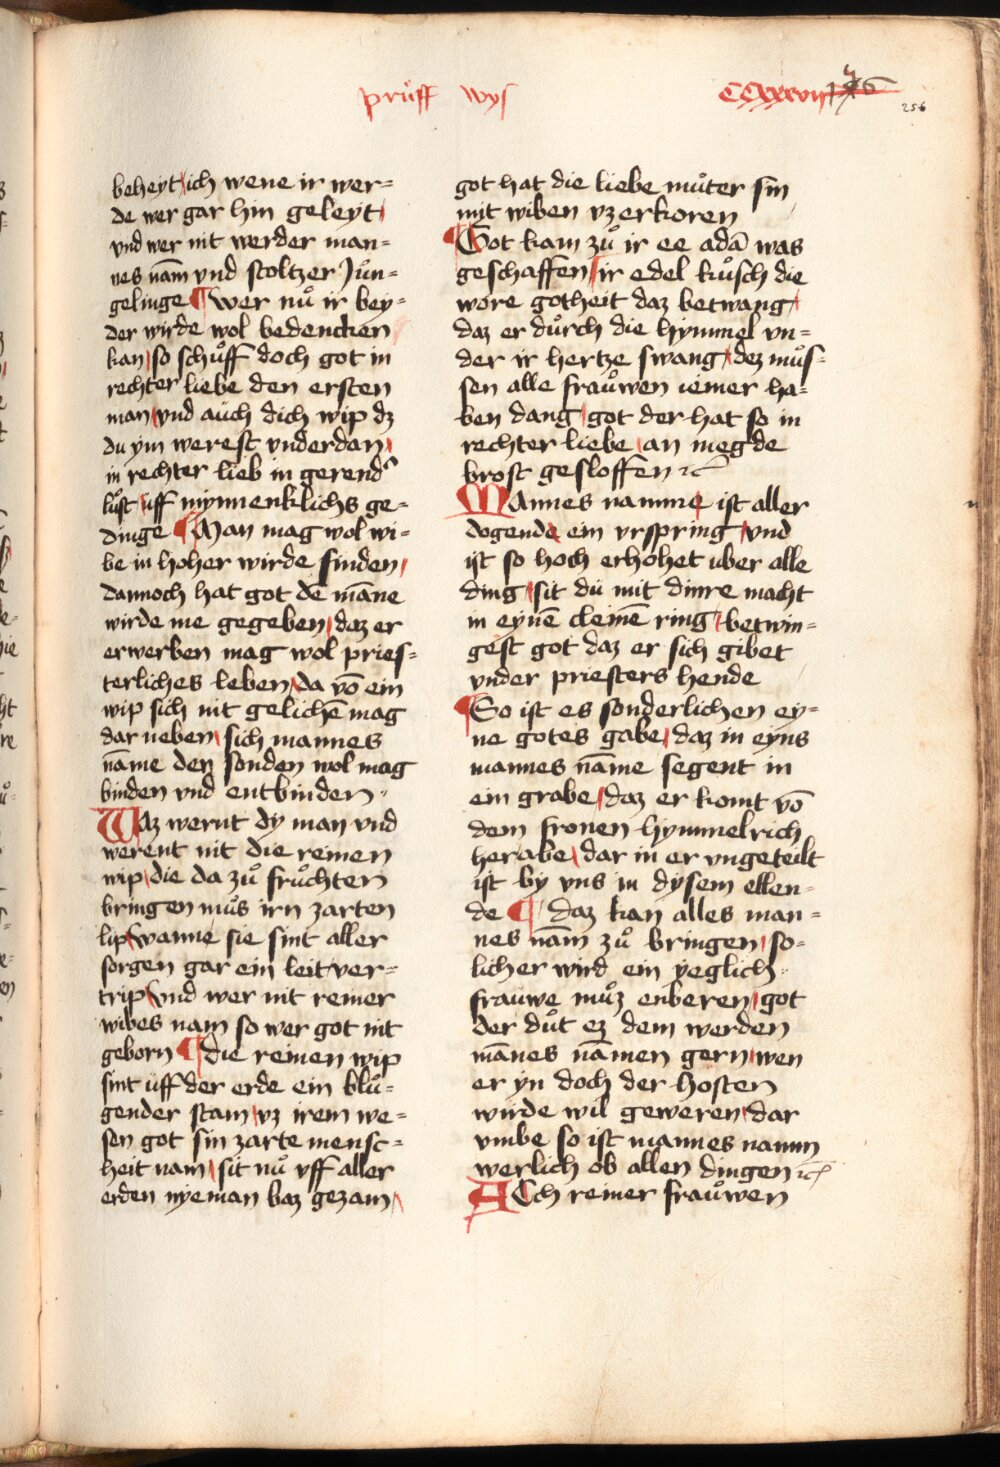 prüff wys
CCxxxvij
256
beheyt ich wene ir wer=
de wer gar hin geleyt
vnd wer nit werder man=
nes nam̄ vnd stoltzer Jůn=
gelinge ¶ wer nů ir bey=
der wirde wol bedencken
kan so schůff doch got in
rechter liebe den ersten
man vnd aüch dich wip dz
du ym werest vnderdan
in rechter lieb in gerend
lůst uff mynnenklichs ge=
dinge ¶ Man mag wol wi=
be in hoher wirde finden
dannoch hat got dē māne
wirde me gegeben daz er
erwerben mag wol pries=
terliches leben da vō ein
wip sich nit gelichē mag
dar neben sich mannes
nāme den sonden wol mag
binden vnd entbinden
Waz wernt dy man vnd
werent nit die reinen
wip die da zů frůchten
bringen můs irn zarten
lip wanne sie sint aller
sorgen gar ein leitver=
trip vnd wer nit reiner
wibes nam so wer got nit
geborn ¶ die reinen wip
sint uff der erde ein blů=
gender stam vz irem we=
sen got sin zarte mensc=
heit nam sit nů vff aller
erden nyeman baz gezam
got hat die liebe můter sin
mit wiben vzerkoren
¶ Got kam zů ir ee adā was
geschaffen ir edel kůsch die
wore gotheit daz betwang
daz er důrch die hymmel vn=
der ir hertze swang dez můs=
sen alle fraůwen iemer ha=
ben dang got der hat so in
rechter liebe an megde
brost gesloffen ꝛc
Mannes namme ist aller
dogende ein vrspring vnd
ist so hoch erhohet uber alle
ding sit dü mit dinre macht
in eynē cleinē ring betwin=
gest got daz er sich gibet
vnder priesters hende
¶ So ist es sonderlichen ey=
ne gotes gabe daz in eyns
mannes nāme segent in
ein grabe daz er komt vō
dem fronen hymmelrich
herabe dar in er vngeteilt
ist by vns in dysem ellen=
de ¶ daz kan alles man=
nes nam̄ zů bringen so=
licher wird ein yeglich
fraüwe můz enberen got
der důt ez dem werden
mānes nāmen gern wen
er yn doch der hosten
wirde wil geweren dar
vmbe so ist mannes namm
werlich ob allen dingen ꝛc
ACh reiner fraůwen